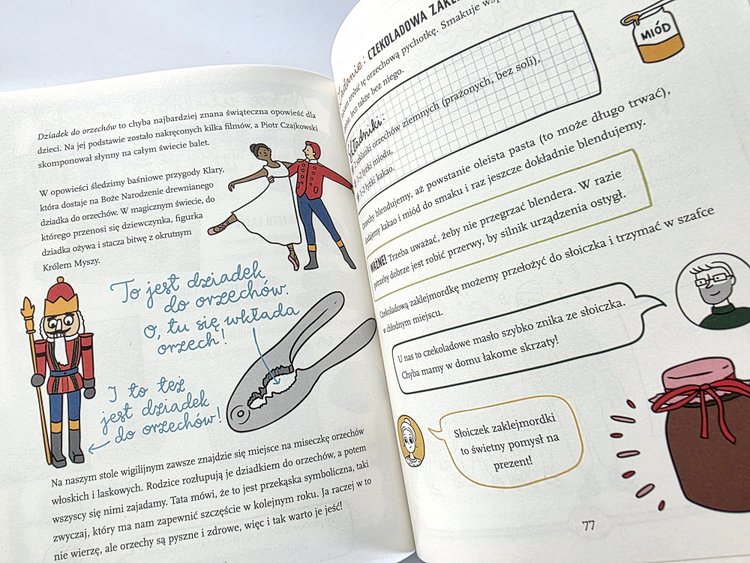 Dziadek do orzechów to chyba najbardziej znana świąteczna opowieść dla
dzieci. Na jej podstawie zostało nakręconych kilka filmów, a Piotr Czajkowski
skomponował słynny na całym świecie balet.
W opowieści śledzimy baśniowe przygody Klary,
która dostaje na Boże Narodzenie drewnianego
dziadka do orzechów. W magicznym świecie, do
którego przenosi się dziewczynka, figurka
dziadka ożywa i stacza bitwę z okrutnym
Królem Myszy.
To jest dziadek
do orzechów.
O, tu się wkłada
orzech!
I to też
jest dziadek
do orzechów!
Na naszym stole wigilijnym zawsze znajdzie się miejsce na miseczkę orzechów
włoskich i laskowych. Rodzice rozłupują je dziadkiem do orzechów, a potem
wszyscy się nimi zajadamy. Tata mówi, że to jest przekąska symboliczna, taki
zwyczaj, który ma nam zapewnić szczęście w kolejnym roku. Ja raczej w to
nie wierzę, ale orzechy są pyszne i zdrowe, więc i tak warto je jeść!
CZEKOLADOWA
zrobić tę orzechową pychotkę. Smakuje
lecz także bez niego.
MIÓD
Składniki:
orzechów ziemnych (prażonych, bez soli),
łyżki miodu,
łyżki kakao.
blendujemy, aż powstanie oleista pasta (to może długo trwać),
kakao i miód do smaku i raz jeszcze dokładnie blendujemy.
WAŻNE! Trzeba uważać, żeby nie przegrzać blendera. W razie
potrzeby dobrze jest robić przerwy, by silnik urządzenia ostygł.
Czekoladową zaklejmordkę możemy przełożyć do słoiczka i trzymać w szafce
w chłodnym miejscu.
U nas to czekoladowe masło szybko znika ze słoiczka.
Chyba mamy w domu łakome skrzaty!
Słoiczek zaklejmordki
to świetny pomysł na
prezent!
77